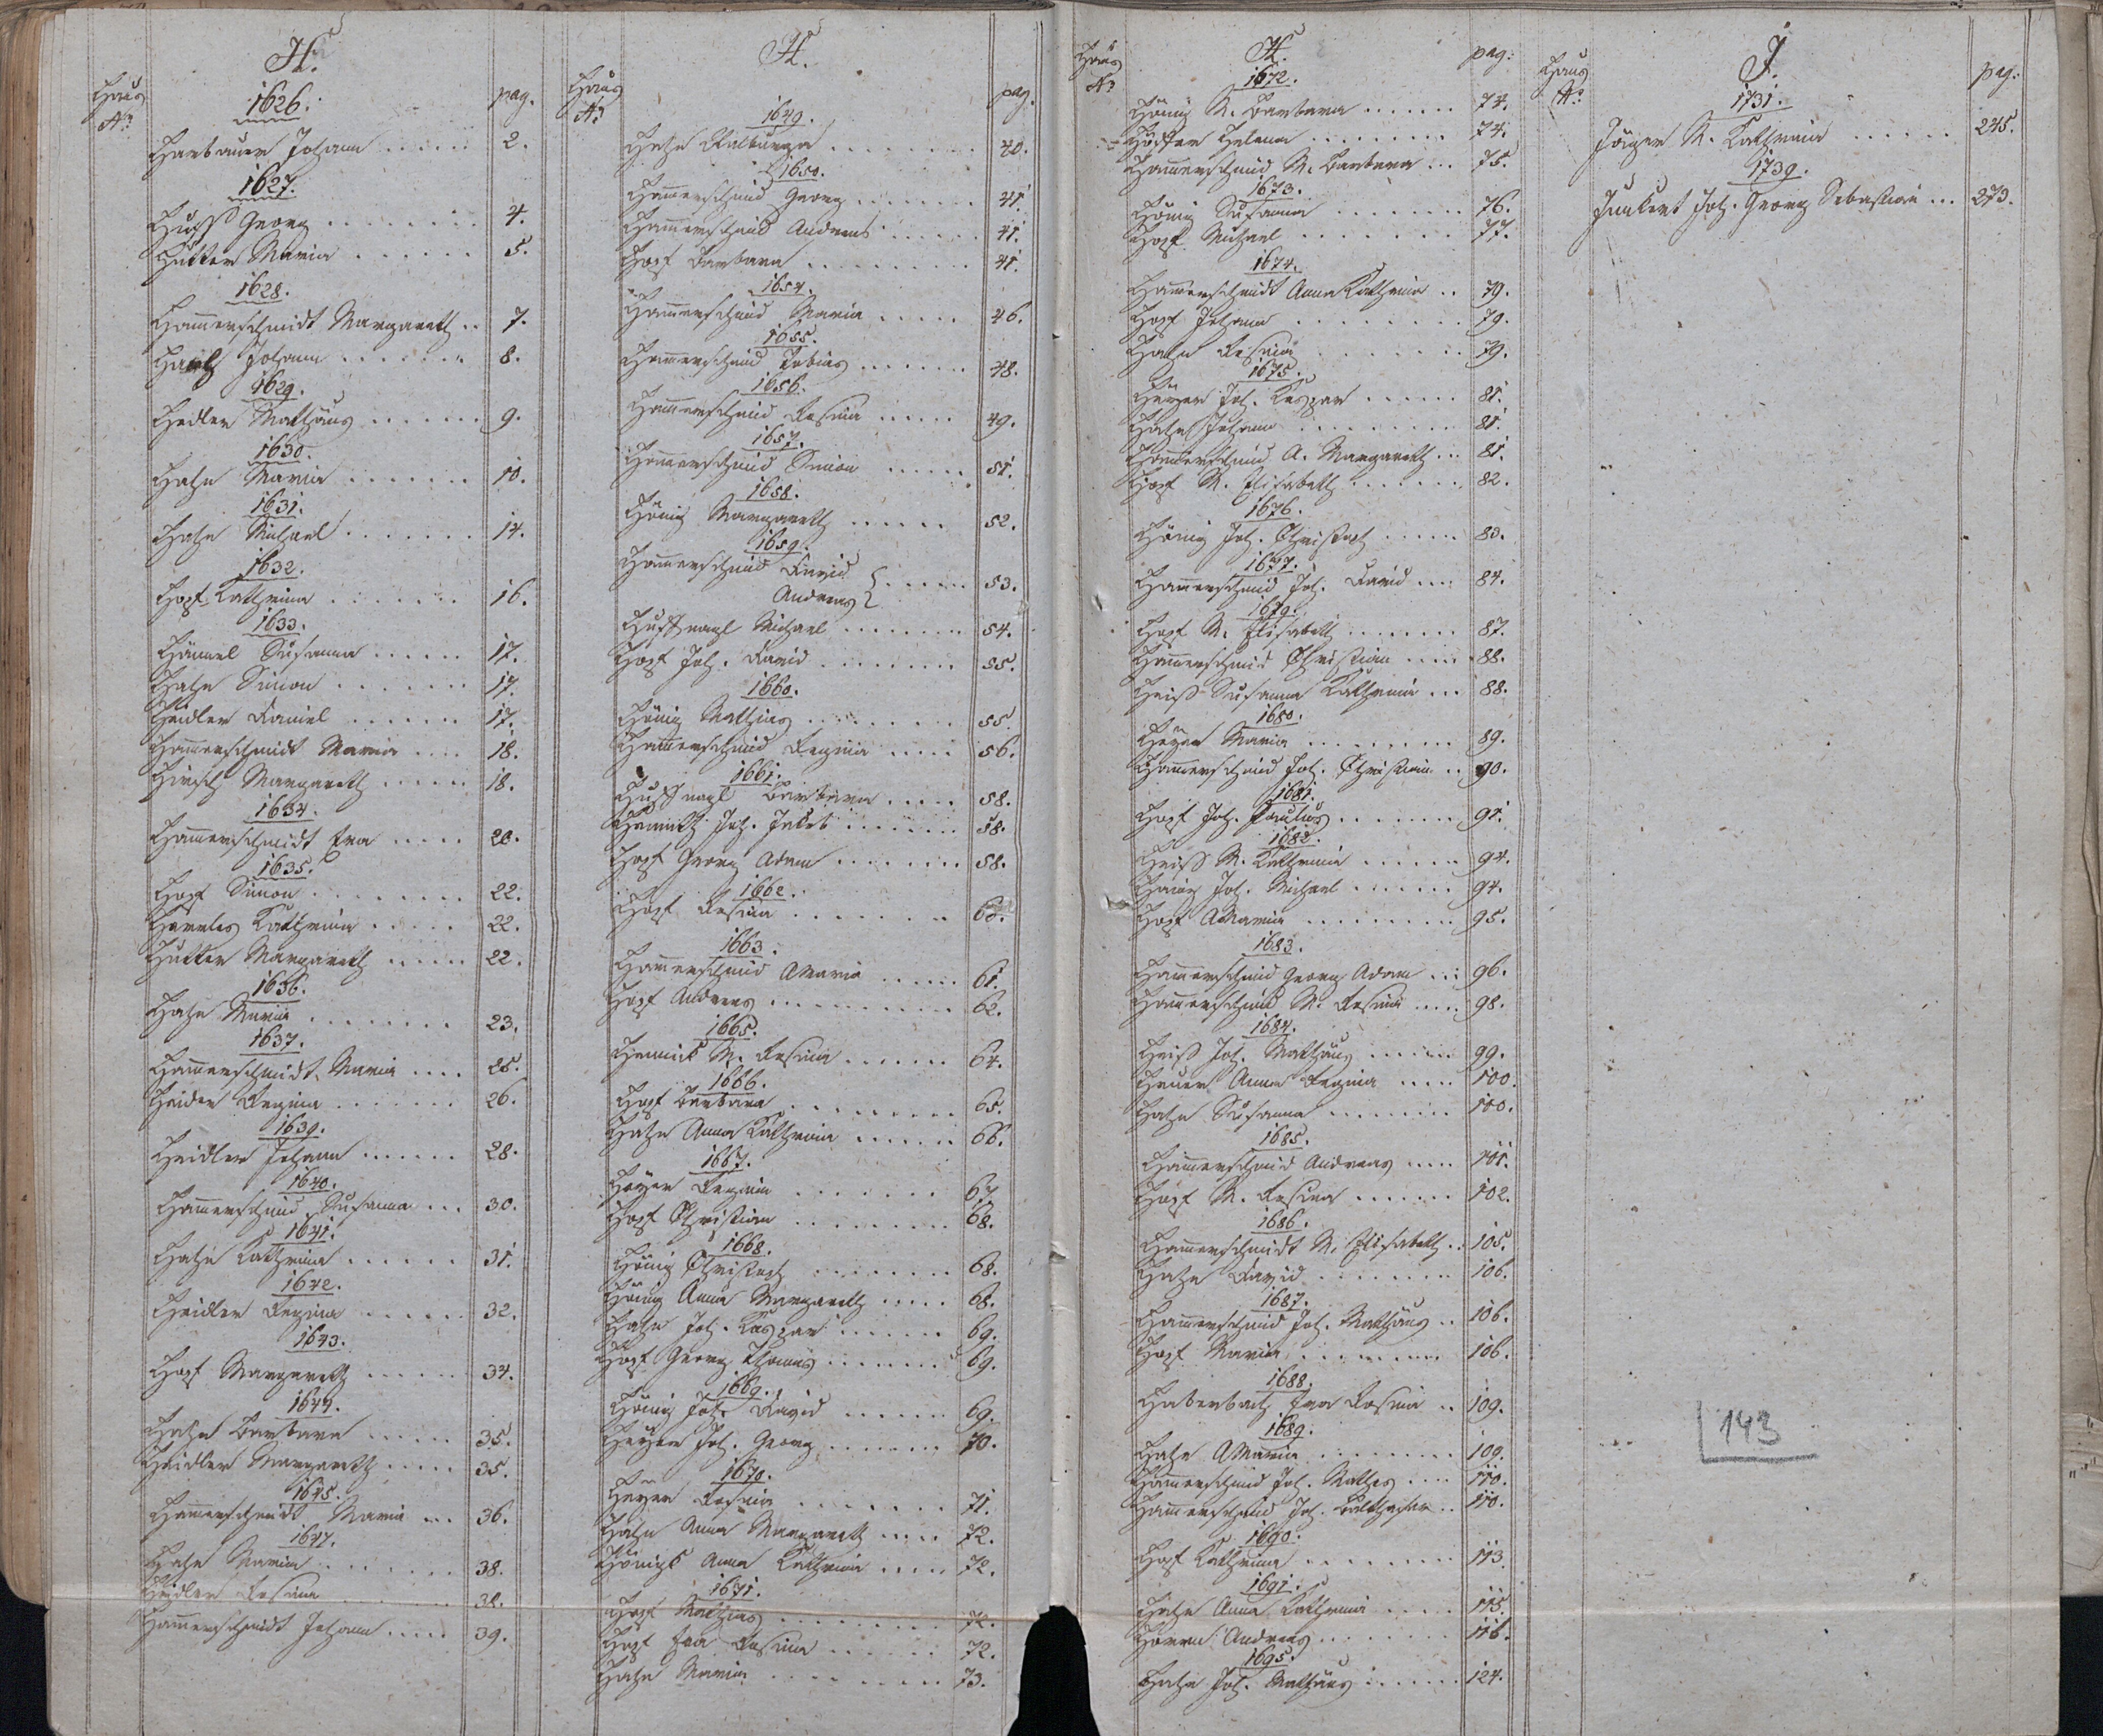 H.
Haus
No
pag.
1626.
Harbauer Johann ..... 2.
1627.
Huss Georg ........ 4.
Hütter Maria ...... 5.
1628.
Ham̄erschmidt Margareth .. 7.
Johann ....... 8.
1629.
Hedler Mathäus ...... 9.
1630.
Hahn Maria ....... 10.
1631.
Hahn Michael ....... 14.
1632.
Hopf Kathrina ....... 16.
1633.
Susanna ...... 17.
Hahn Simon ....... 17.
Heidler Daniel ...... 17.
Ham̄erschmidt Maria .... 18.
Hirsch Margareth ...... 18.
1634.
Ham̄erschmidt Eva ..... 20.
1635.
Hopf Simon ........ 22.
Kathrina ..... 22.
Hutter Margareth ..... 22.
1636.
Hahn Maria ........ 23.
1637.
Ham̄erschmidt Maria .... 25.
Heider Regina ....... 26.
1639.
Heidler Johann ....... 28.
1640.
Ham̄erschmid Susanna ... 30.
1641.
Hahn Kathrina ...... 31.
1642.
Heidler Regina ...... 32.
1643.
Hopf Margareth ...... 34.
1644.
Hahn Barbara ...... 35.
Heidler Margareth ..... 35.
1645.
Ham̄erschmidt Maria ... 36.
1647.
Hahn Maria ....... 38.
Heidler Rosina ....... 38.
Ham̄erschmidt Johann ..... 39.
H.
Haus
No
pag.
1649.
Hahn Walburga ........ 40.
1650.
Ham̄erschmid Georg ....... 41.
Ham̄erschmid Andreas ...... 41.
Hopf Barbara .......... 41.
1654.
Ham̄erschmid Maria ..... 46.
1655.
Ham̄erschmid Tobias ....... 48.
1656.
Ham̄erschmid Rosina ..... 49.
1657.
Ham̄erschmid Simon ...... 51.
1658.
Hönig Margareth ...... 52.
1659.
Ham̄erschmid David
Andreas } ..... 53.
Hufnagl Michael ........ 54.
Hopf Joh. David ........ 55.
1660.
Hönig Mathias ........ 55.
Ham̄erschmid Regina ..... 56.
1661.
Hufnagl Barbara ..... 58.
Joh. Jakob ........ 58.
Hopf Georg Adam ....... 58.
1662.
Hopf Rosina ........ 60.
1663.
Ham̄erschmid AMaria ...... 61.
Hopf Andreas .......... 62.
1665.
M. Rosina ....... 64.
1666.
Hopf Barbara ......... 65.
Hahn Anna Kathrina ...... 66.
1667.
Hoyer Regina ....... 67.
Hopf Christian ......... 68.
1668.
Hönig Christoph ........ 68.
Hönig Anna Margareth ..... 68.
Hahn Joh. Kaspar ....... 69.
Hopf Georg Thomas ....... 69.
1669.
Hönig Joh. David ...... 69.
Heyer Joh. Georg ....... 70.
1670.
Heyer Rosina ........ 71.
Hahn Anna Margareth ..... 72.
Anna Kathrina ..... 72.
1671.
Hopf Mathias ........ 72.
Hopf Eva Rosina ...... 72.
Hahn Maria ......... 73.
H.
Haus
No
pag:
1672.
Hönig M. Barbara ...... 74.
Helena ........ 74.
Ham̄erschmid M. Barbara ... 75.
1673.
Hönig Susanna ....... 76.
Hopf Michael ........ 77.
1674.
Ham̄erschmidt Anna Kathrina .. 79.
Hopf Johann ......... 79.
Hahn Rosina ........ 79.
1675.
Heyer Joh. Kaspar ...... 81.
Hahn Johann ......... 81.
Ham̄erschmid A. Margareth ... 81.
Hopf M. Elisabeth ....... 82.
1676.
Hönig Joh. Christoph ...... 83.
1677.
Ham̄erschmid Joh. David .... 84.
1679.
Hopf M. Elisabeth ....... 87.
Ham̄erschmid Christian ..... 88.
Heiss Susanna Kathrina ... 88.
1680.
Heyer Maria ......... 89.
Ham̄erschmid Joh. Christian .. 90.
1681.
Hopf Joh. Paulus ....... 91.
1682.
Heiss M. Kathrina ...... 94.
Joh. Michael ....... 94.
Hopf AMaria ......... 95.
1683.
Ham̄erschmid Georg Adam ... 96.
Ham̄erschmid M. Rosina ..... 98.
1684.
Heiss Joh. Mathäus ...... 99.
Anna Regina ..... 100.
Hahn Susanna ........ 100.
1685.
Ham̄erschmid Andreas ..... 101.
Hopf M. Rosina ....... 102.
1686.
Ham̄erschmidt M. Elisabeth .. 105.
Hahn David ........ 106.
1687.
Ham̄erschmid Joh. Mathäus .. 106.
Hopf Maria ......... 106.
1688.
Haberbach Eva Rosina .. 109.
1689.
Hahn AMaria ........ 109.
Ham̄erschmid Joh. Mathes .... 110.
Ham̄erschmid Joh. Balthasar .. 110.
1690.
Hopf Kathrina ......... 113.
1691.
Hahn Anna Kathrina .... 115.
Andreas ........ 116.
1695.
Hahn Joh. Mathäus ...... 124.
J.
Haus
No:
pag:
1731.
Jäger M. Kathrina ...... 245.
1739.
Junkert Joh. Georg Sebastian ... 273.
143